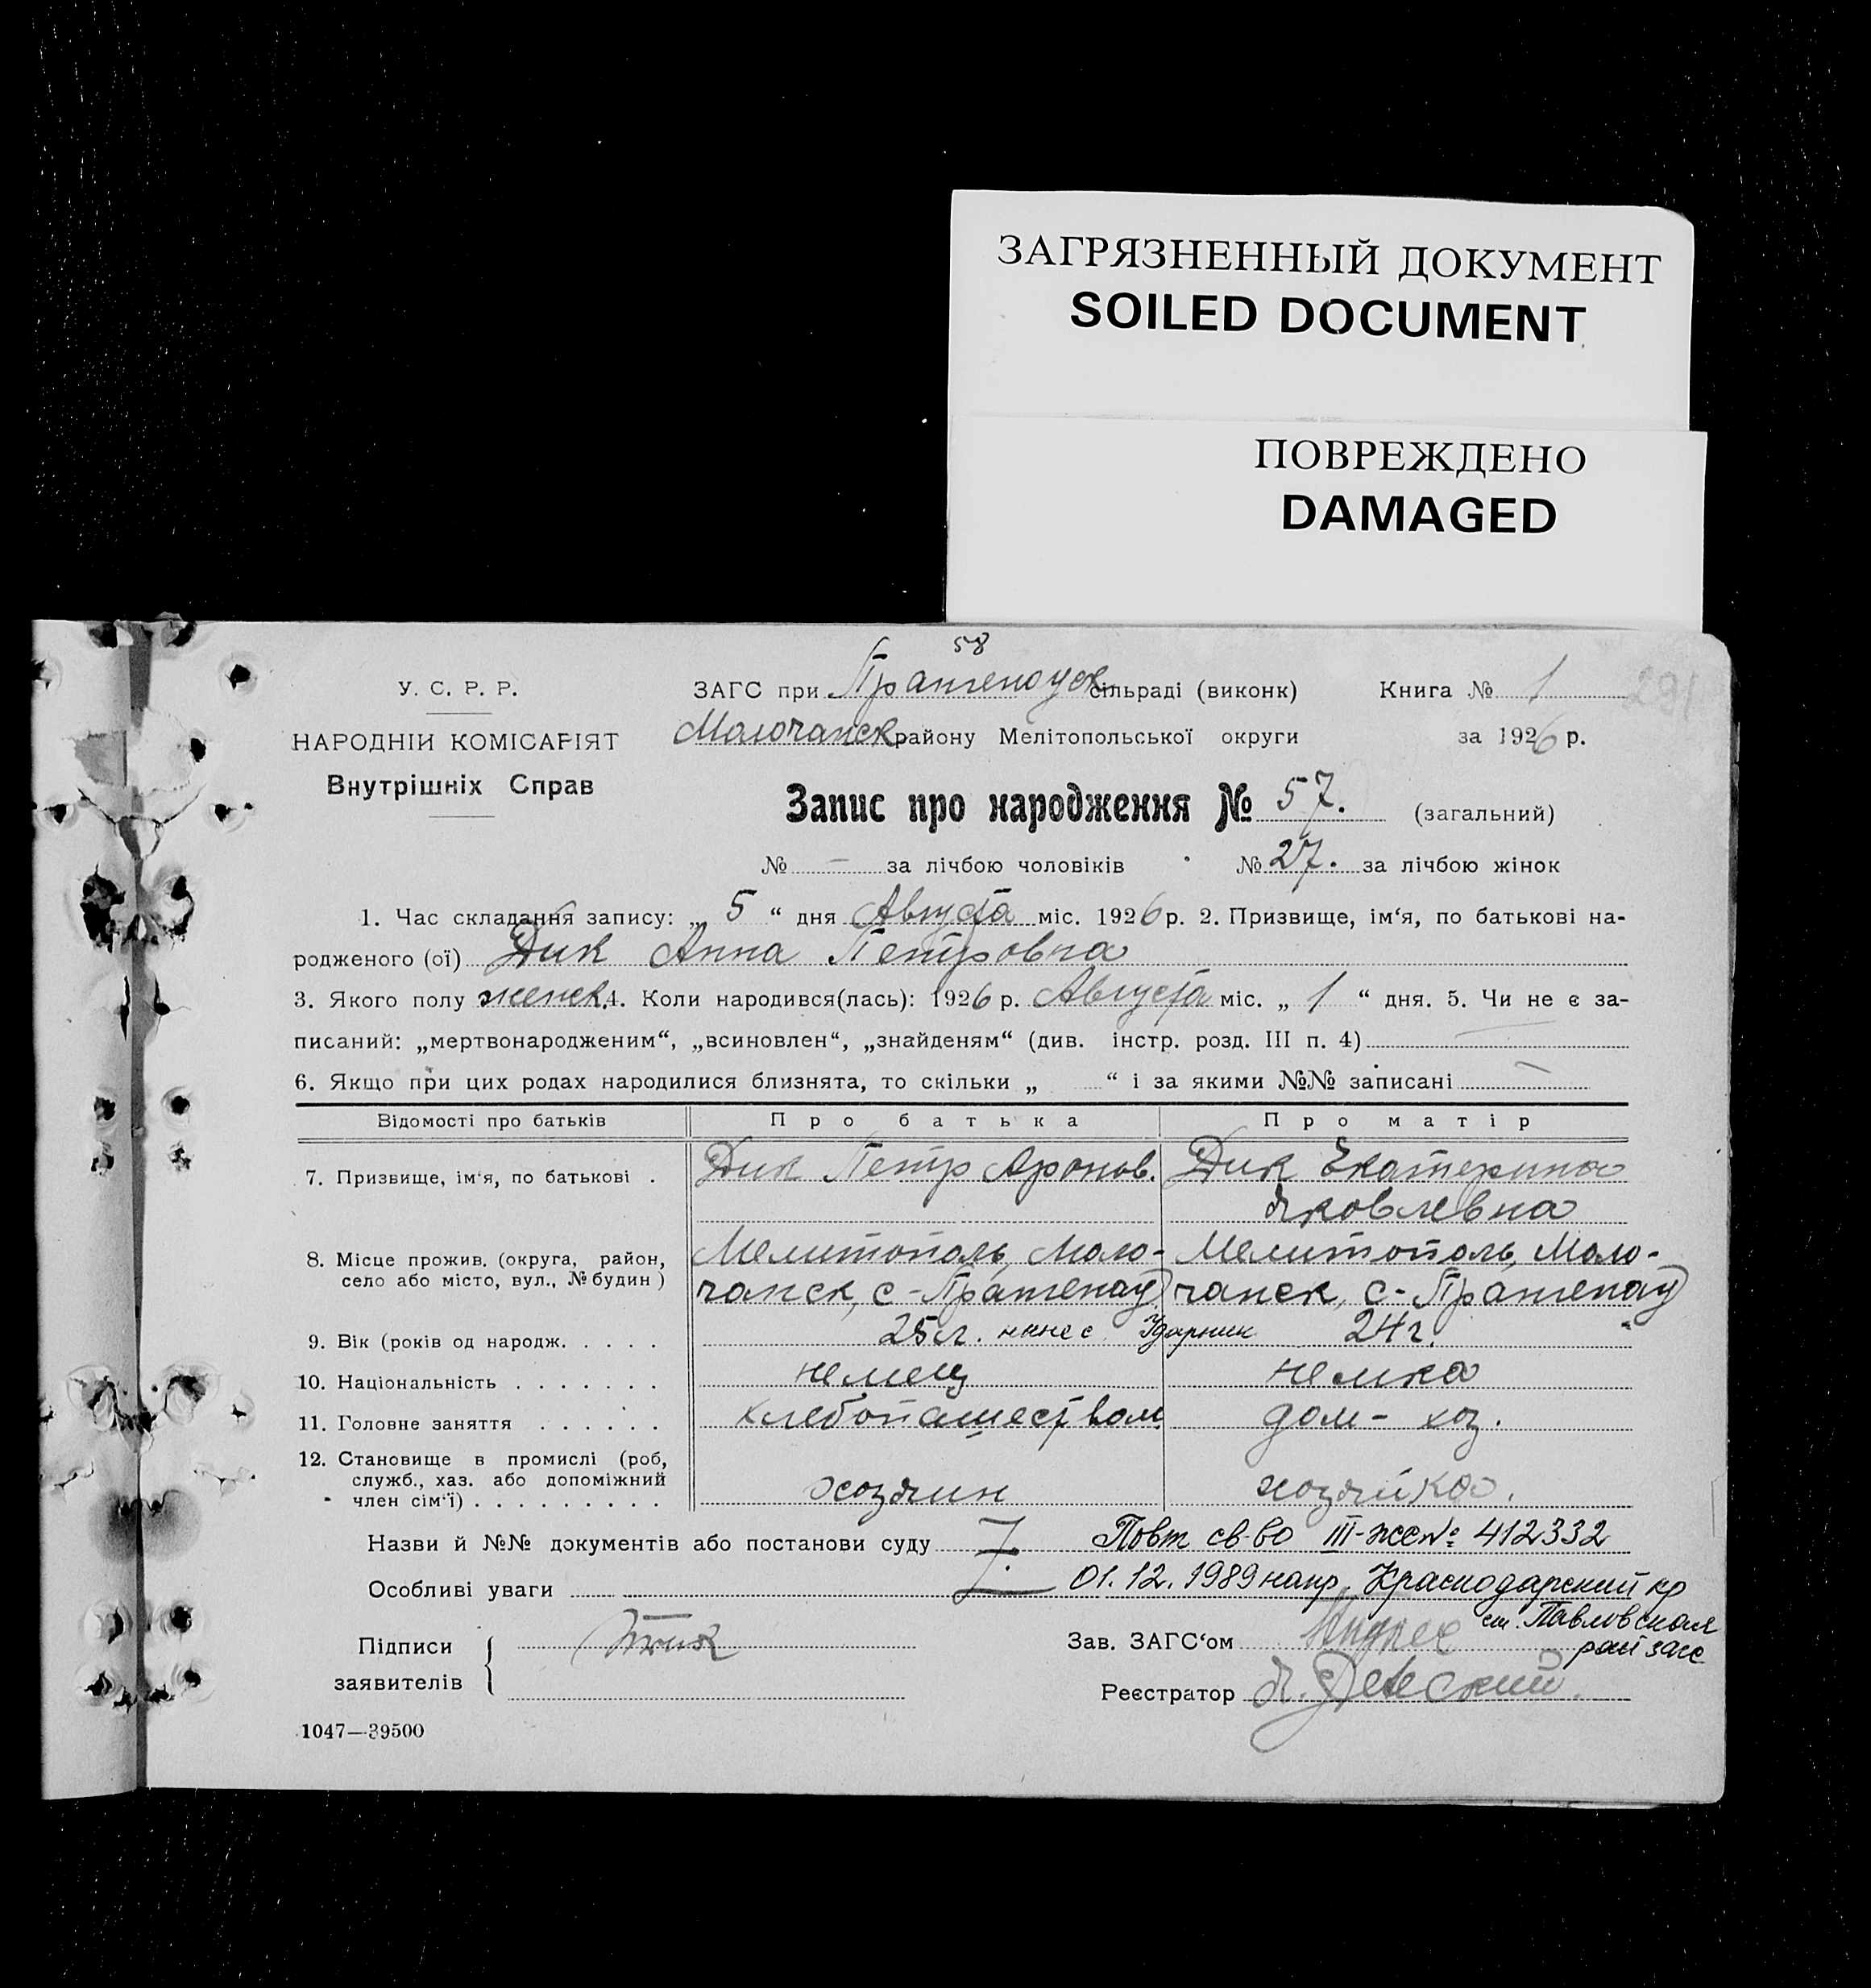 ЗАГРЯЗНЕННЫЙ ДОКУМЕНТ
SOILED DOCUMENT
ПОВРЕЖДЕНО
DAMAGED
58
У. С. Р. Р.
НАРОДНІЙ КОМІСАРІЯТ
Внутрішніх Справ
ЗАГС при Прангенауск сільраді (виконк) Книга № 1 291
Молочанск району Мелітопольської округи за 1926 р.
Запис про народження № 57. (загальний)
№ — за лічбою чоловіків № 27. за лічбою жінок
1. Час складання запису: „ 5 “ дня Августа міс. 1926 р. 2. Призвище, ім‘я, по батькові на-
родженого (ої) Дик Анна Петровна
3. Якого полу женск. 4. Коли народився(лась): 1926 р. Августа міс. „ 1 “ дня. 5. Чи не є за-
писаний: „мертвонародженим“, „всиновлен“, „знайденям“ (див. інстр. розд. III п. 4) —
6. Якщо при цих родах народилися близнята, то скільки „ “ і за якими №№ записані —
Відомості про батьків Про батька Про матір
7. Призвище, ім‘я, по батькові . Дик Петр Аронов. Дик Екатерина
Яковлевна
8. Місце прожив. (округа, район, село або місто, вул., № будин ) Мелитополь, Моло- Мелитополь, Моло-
чанск, с-Прангенау чанск, с-Прангенау
9. Вік (років од народж. . . . . 25 л. ныне с. Ударник 24 г.
10. Національність . . . . . . . немец немка
11. Головне заняття . . . . . . хлебопашеством дом- хоз.
12. Становище в промислі (роб, служб., хаз. або допоміжний член сім‘ї) . . . . . . . . . хозяин хозяйка.
Назви й №№ документів або постанови суду Повт св-во III-жс № 412332
Особливі уваги 01.12.1989 напр. Краснодарский кр
ст. Павловская
рай загс
Підписи
заявителів
Зав. ЗАГС‘ом
Реєстратор
1047—39500